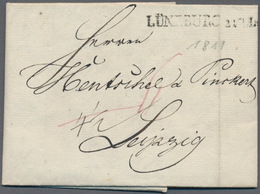 LÜNEBURG
1811
Herren
Hentschel & Pinckert
Leipzig